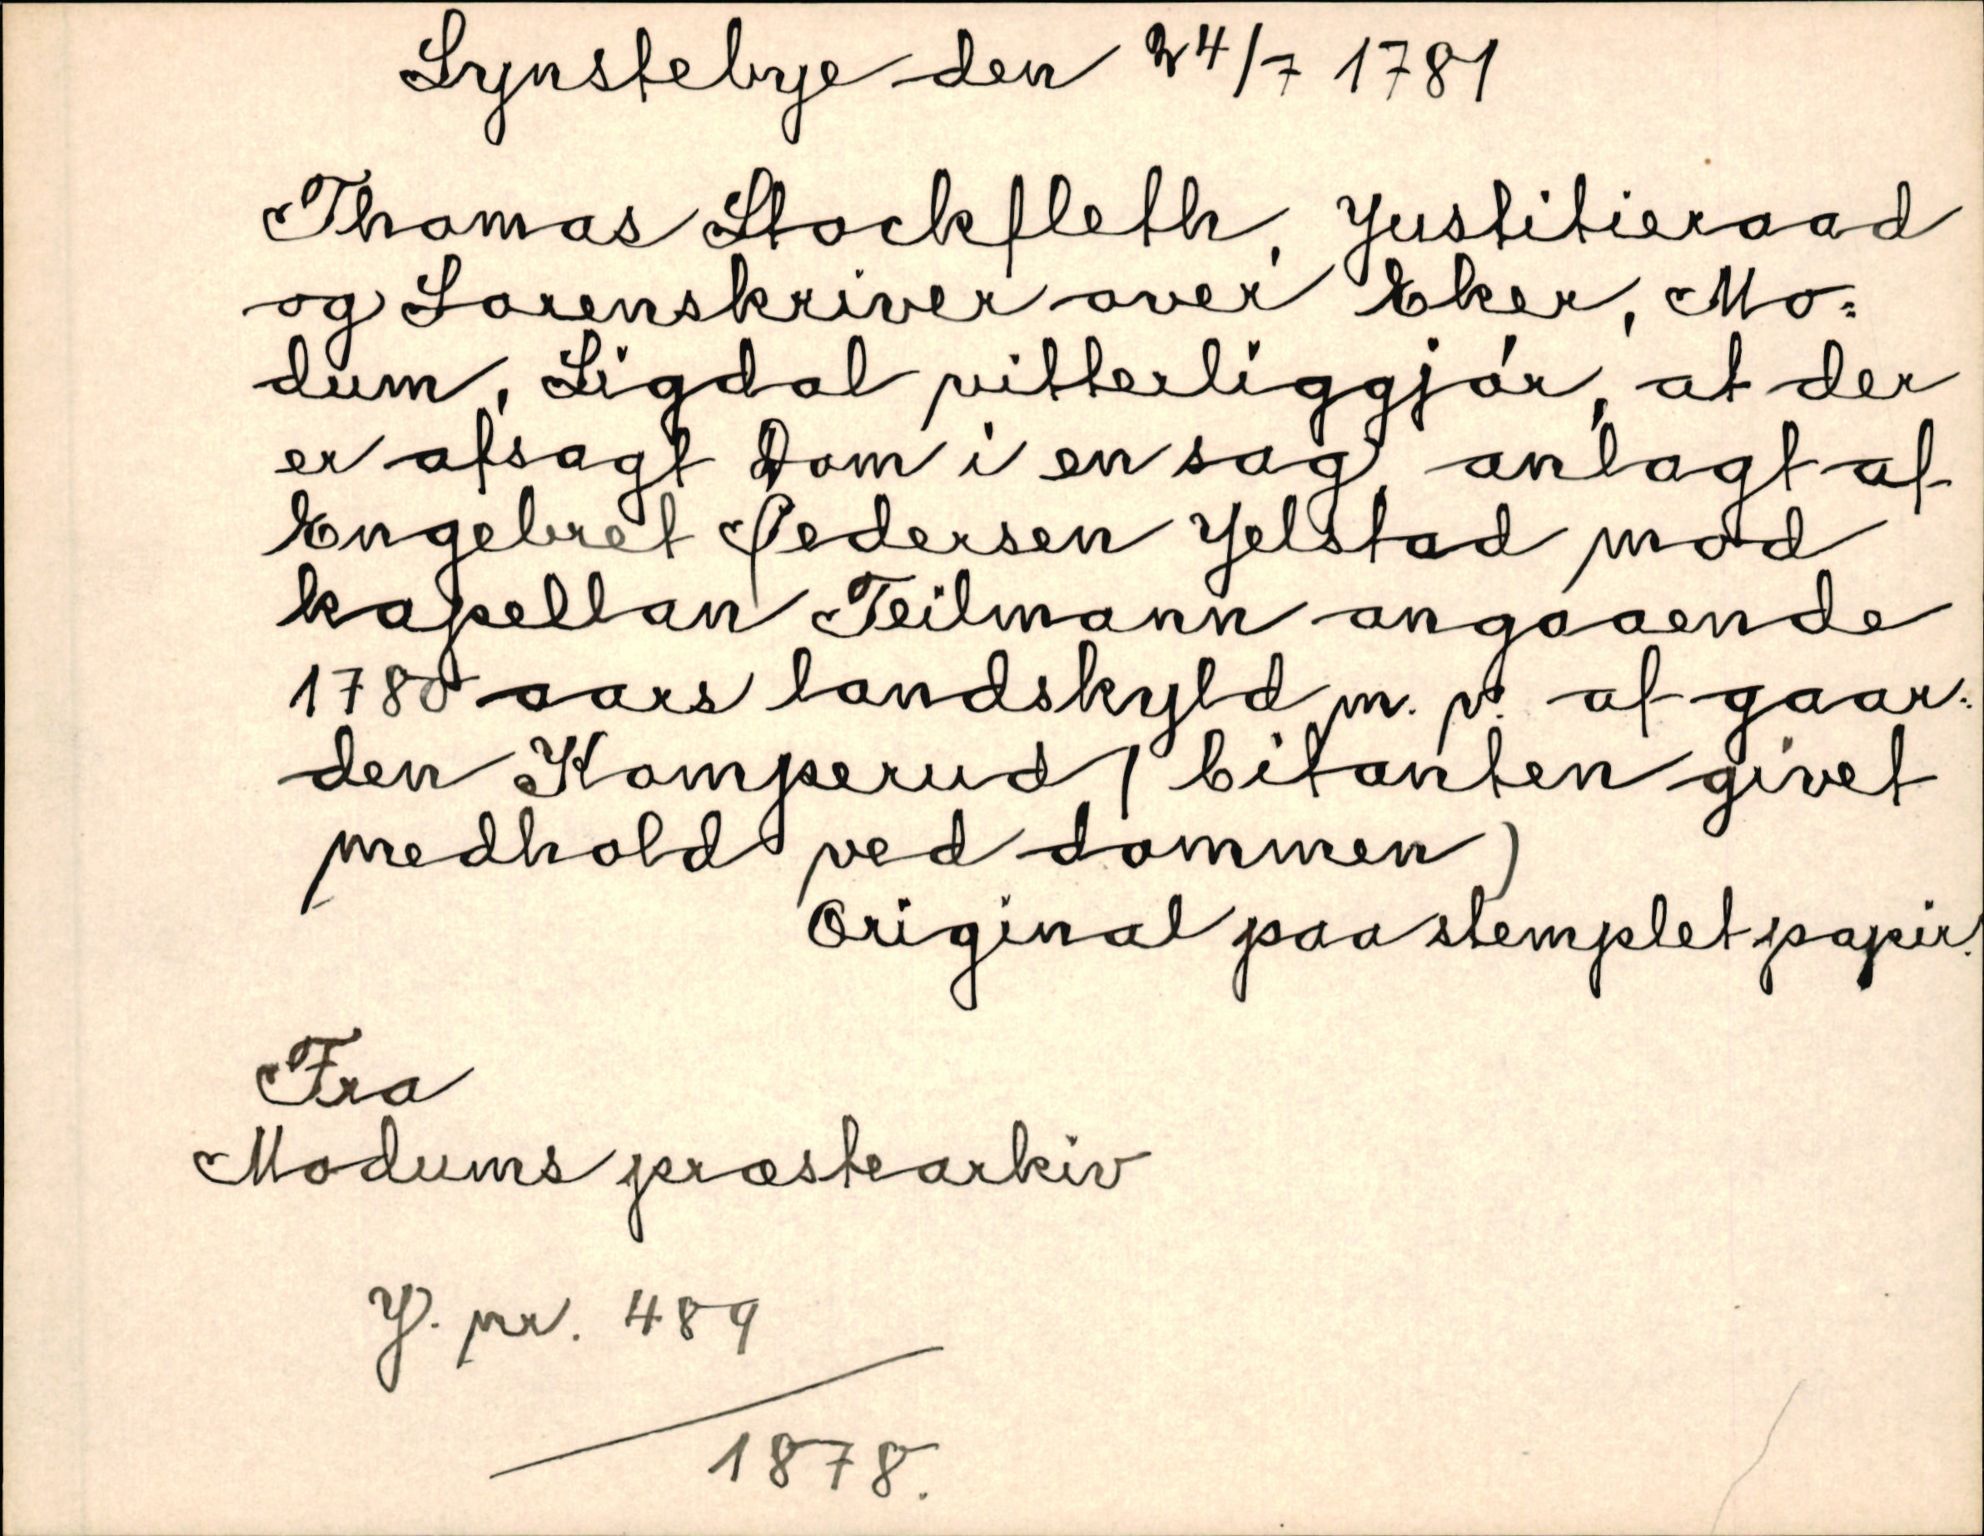 Synstebye den 24/7 1781
Thomas Stockfleth, Justitieraad
og Sorenskriver over Eker, Mo-
dum, Sigdal vitterliggjör, at der
er afsagt Dom i en sag, anlagt af
Engebret Pedersen Jelstad mod
kapellan Teilmann angaaende
1780 aars landskyld m. v. af gaar-
den Komperud (Citanten givet
medhold ved dommen)
Original paa stemplet papir.
Fra
Modums præstearkiv
J. nr. 489
1878.